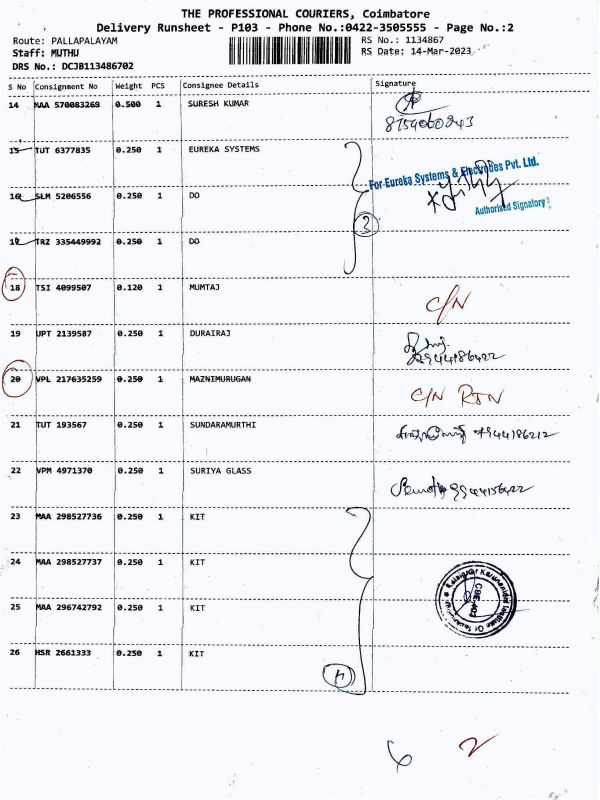 THE PROFESSIONAL COURIERS, Coimbatore
Delivery Runsheet - P103 - Phone No.:0422-3505555 - Page No.:2
Route: PALLAPALAYAM RS No.: 1134867
Staff: MUTHU RS Date: 14-Mar-2023
DRS No.: DCJB113486702
S No Consignment No Weight PCS Consignee Details Signature
14 MAA 570083269 0.500 1 SURESH KUMAR
8754060243
15 TUT 6377835 0.250 1 EUREKA SYSTEMS
For Eureka Systems & Electrodes Pvt. Ltd.
16 SLM 5206556 0.250 1 DO
Authorised Signatory
3
17 TRZ 335449992 0.250 1 DO
18 TSI 4099507 0.120 1 MUMTAJ C/N
19 UPT 2139587 0.250 1 DURAIRAJ
9944186422
20 VPL 217635259 0.250 1 MAZNIMURUGAN C/N RTN
21 TUT 193567 0.250 1 SUNDARAMURTHI
22 VPM 4971370 0.250 1 SURIYA GLASS
23 MAA 298527736 0.250 1 KIT
24 MAA 298527737 0.250 1 KIT
25 MAA 296742792 0.250 1 KIT
26 HSR 2661333 0.250 1 KIT
4
2